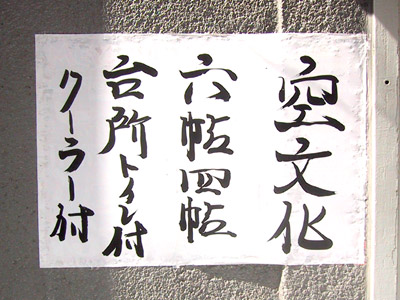 空文化
六帖四帖
台所トイレ付
クーラー付